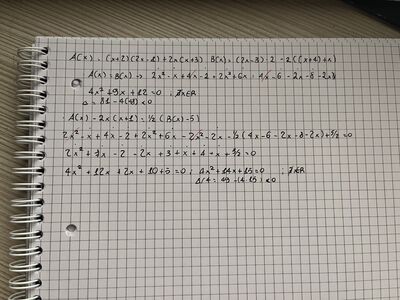 A(x) = (x+2)(2x-1)+2x(x+3) B(x) = (2x-3)·2-2((x+4)+x)
A(x) = B(x) → 2x²-x+4x-2+2x²+6x = 4x-6-2x-8-2x
4x²+9x+12=0 ; ∄x∈R
Δ = 81-4(48)<0
· A(x)-2x(x+1) = ½(B(x)-5)
2x²-x+4x-2+2x²+6x-2x²-2x-½(4x-6-2x-8-2x)+5/2=0
2x²+7x-2-2x+3+x+4+x+5/2=0
4x²+12x+2x+10+5=0 ; 4x²+14x+15=0 ; ∄x∈R
Δ/4 = 49-(4·15)<0